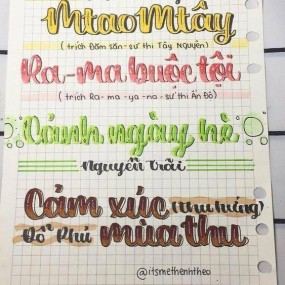 Mtao Mtây
(trích Đăm săn - sử thi Tây Nguyên)
Ra-ma buộc tội
(trích Ra-ma-ya-na-sử thi Ấn Độ)
Cảnh ngày hè
Nguyễn Trãi
Cảm xúc (thu hứng)
Đỗ Phủ mùa thu
@itsmethenhtheo